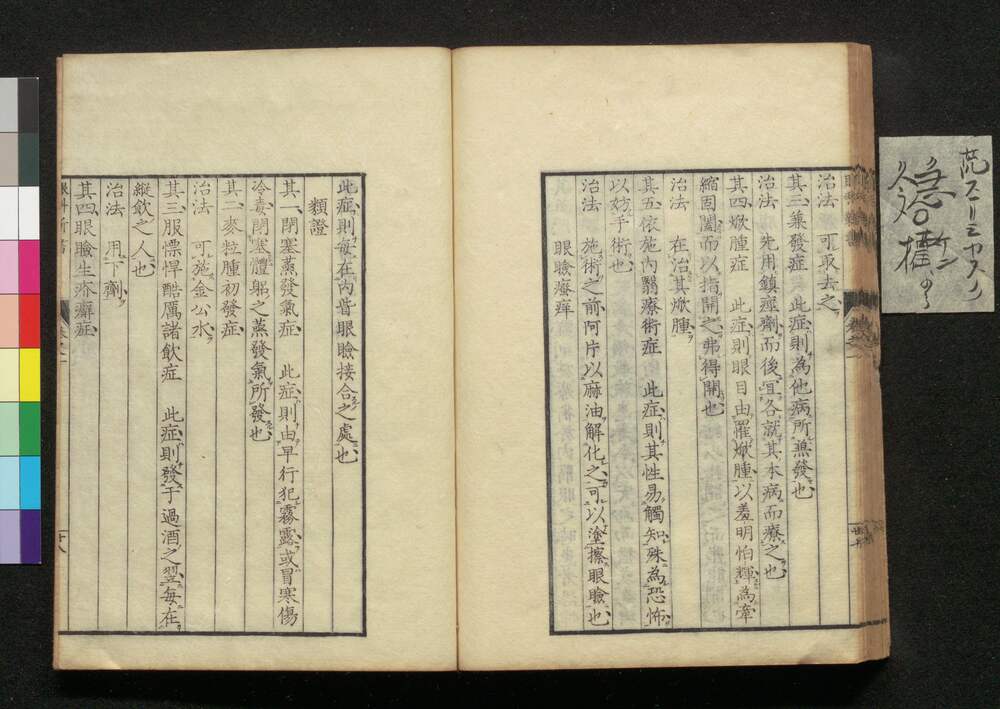 治法　可取去之
其三、兼發症　此症則為他病所兼發也
治法　先用鎮痙劑而後宜各就其本病而療之也
其四、焮腫症　此症則眼目由罹焮腫以羞明怕輝為牽
縮固闔而以指開之弗得開也
治法　在治其焮腫
其五、依施內翳療術症　此症則其性易觸知殊為恐怖
以妨手術也
治法　施術之前阿片以麻油解化之可以塗擦眼瞼也
眼瞼瘙痒
此症則每在內眥眼瞼接合之處也
類證
其一、閉塞蒸發氣症　此症則由早行犯霧露或冒寒傷
冷毒閉塞體躬之蒸發氣所發也
其二、麥粒腫初發症
治法　可施金公水
其三、服慓悍酷厲諸飲症　此症則發于過酒之翌每在
縱飲之人也
治法　用下劑
其四、眼瞼生疥癬症
眼科新書
卷之一
廿八